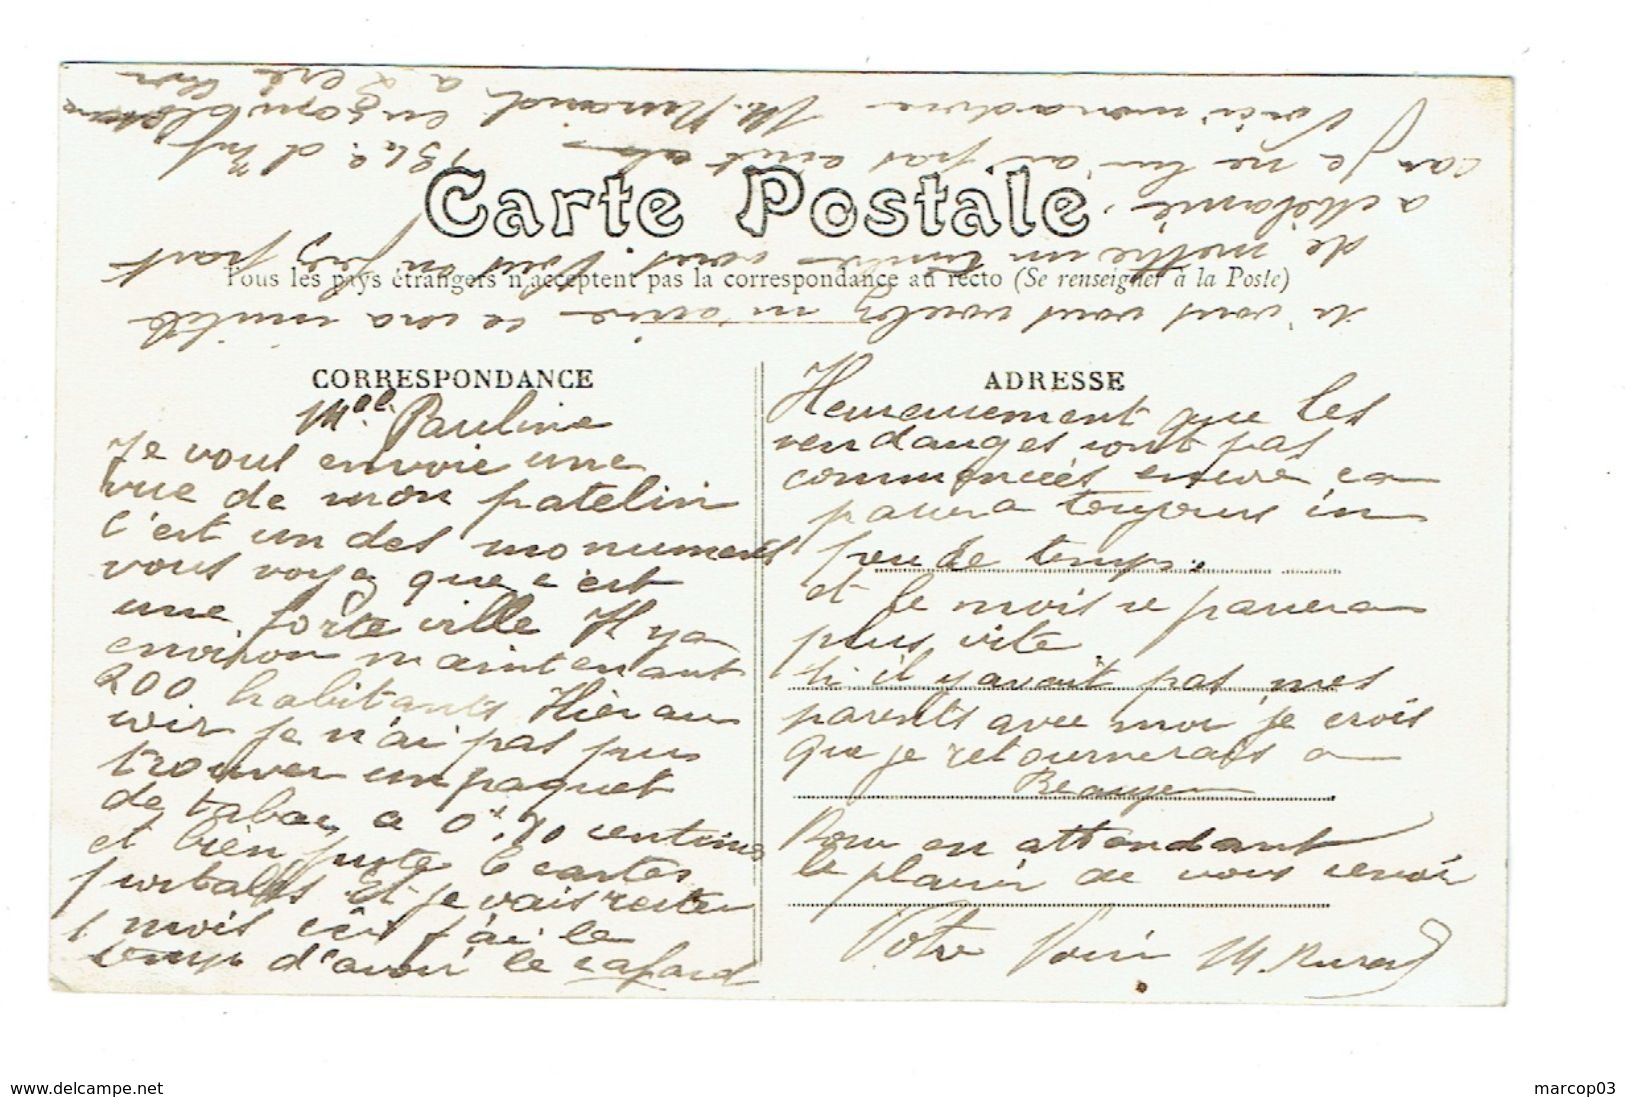 Carte Postale
Tous les pays étrangers n'acceptent pas la correspondance au recto (Se renseigner à la Poste)
CORRESPONDANCE
Mell Pauline
Je vous envoie une
vue de mon patelin
C'est un des monuments
vous voyez que c'est
une forte ville Il y a
environ maintenant
200 habitants Hier au
soir je n'ai pas pus
trouver un paquet
de tabac a 0f,70 centimes
et bien juste 6 cartes
postales Et je vais rester
1 mois ici j'ai le
temps d'avoir le cafard
ADRESSE
Heureusement que les
vendanges sont pas
commencées encore ca
passera toujours un
peu de temps.
et le mois se passera
plus vite
Si il y avait pas mes
parents avec moi je crois
que je retournerais a
Beaujeu
Pour en attendant
le plaisir de vous revoir
Votre Voisin M. Renaud
si vous vous voulez m'ecrire ce sera inutile
de mettre un timbre vous en ferez part
a Melanie,
car je ne lui ai pas ecrit
Voici mon adresse M. Renaud
134e d'Inf
a Leré Cher
www.delcampe.net
marcop03